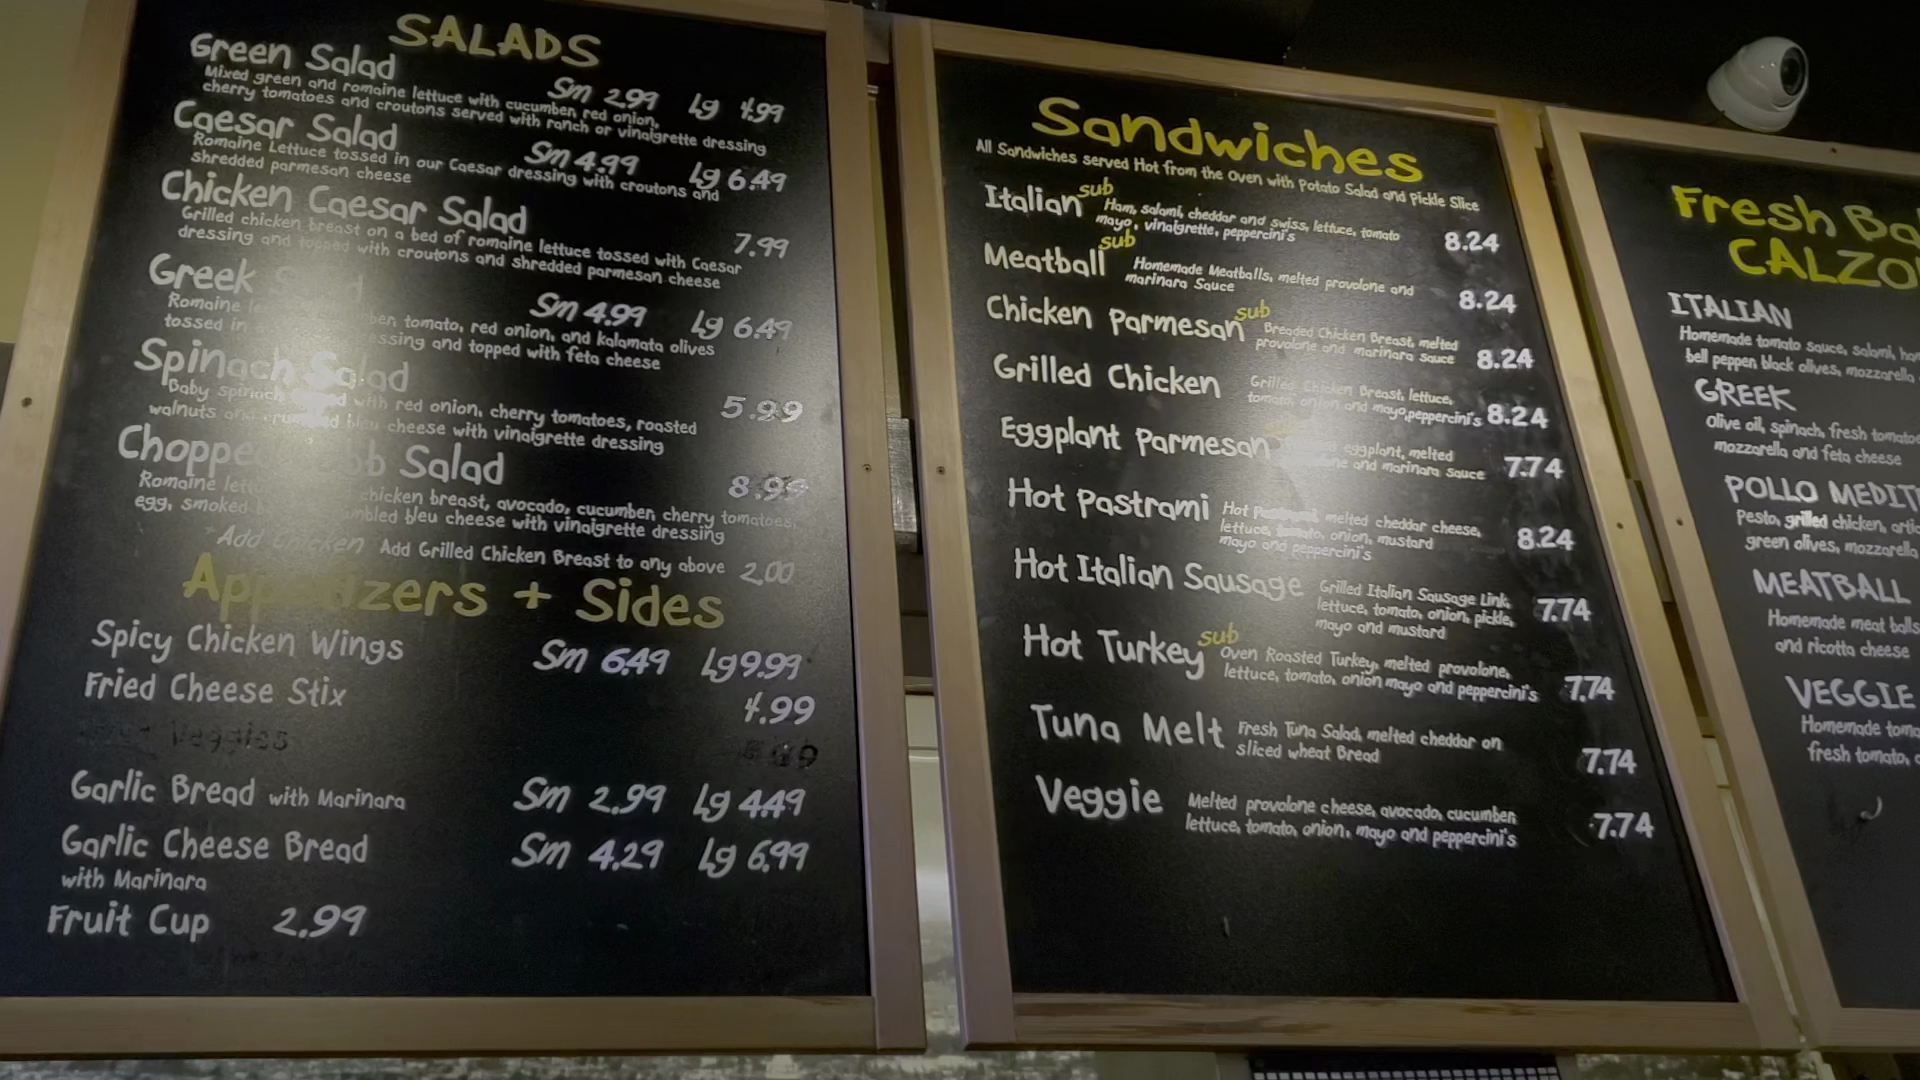 SALADS
Green Salad Sm 2.99 Lg 4.99
Mixed green and romaine lettuce with cucumber, red onion,
cherry tomatoes and croutons served with ranch or vinaigrette dressing
Caesar Salad Sm 4.99 Lg 6.49
Romaine Lettuce tossed in our Caesar dressing with croutons and
shredded parmesan cheese
Chicken Caesar Salad 7.99
Grilled chicken breast on a bed of romaine lettuce tossed with Caesar
dressing and topped with croutons and shredded parmesan cheese
Greek Sm 4.99 Lg 6.49
Romaine tomato, red onion, and kalamata olives
tossed in and topped with feta cheese
Spinach Salad 5.99
Baby spinach with red onion, cherry tomatoes, roasted
walnuts and bleu cheese with vinaigrette dressing
Salad 8.99
Romaine chicken breast, avocado, cucumber, cherry tomatoes,
egg, smoked bleu cheese with vinaigrette dressing
Add Chicken Add Grilled Chicken Breast to any above 2.00
Appetizers + Sides
Spicy Chicken Wings Sm 6.49 Lg 9.99
Fried Cheese Stix 4.99
Veggies
Garlic Bread with Marinara Sm 2.99 Lg 4.49
Garlic Cheese Bread Sm 4.29 Lg 6.99
with Marinara
Fruit Cup 2.99
Sandwiches
All Sandwiches served Hot from the Oven with Potato Salad and Pickle Slice
Italian sub Ham, salami, cheddar and swiss, lettuce, tomato
mayo, vinaigrette, peppercini's 8.24
Meatball sub Homemade Meatballs, melted provolone and
marinara Sauce 8.24
Chicken Parmesan sub Breaded Chicken Breast, melted
provolone and marinara sauce 8.24
Grilled Chicken Grilled Chicken Breast, lettuce,
tomato, onion and mayo,peppercini's 8.24
Eggplant Parmesan eggplant, melted
and marinara sauce 7.74
Hot Pastrami Hot melted cheddar cheese,
lettuce, tomato, onion, mustard
mayo and peppercini's 8.24
Hot Italian Sausage Grilled Italian Sausage Link,
lettuce, tomato, onion, pickle,
mayo and mustard 7.74
Hot Turkey sub Oven Roasted Turkey, melted provolone,
lettuce, tomato, onion mayo and peppercini's 7.74
Tuna Melt Fresh Tuna Salad, melted cheddar on
sliced wheat Bread 7.74
Veggie Melted provolone cheese, avocado, cucumber,
lettuce, tomato, onion, mayo and peppercini's 7.74
Fresh
ITALIAN
Homemade tomato sauce, salami,
bell pepper, black olives, mozzarella
GREEK
Olive oil, spinach, fresh
mozzarella and feta cheese
POLLO
Pesto, grilled chicken,
green olives, mozzarella
MEATBALL
Homemade meat balls
and ricotta cheese
VEGGIE
Homemade
fresh tomato,